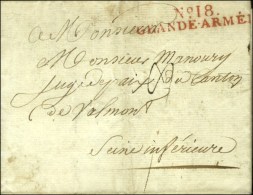 No 18.
GRANDE-ARMÉE
A Monsieur
Monsieur Manoury
juge de paix du Canton
de Valmont
Seine inférieure